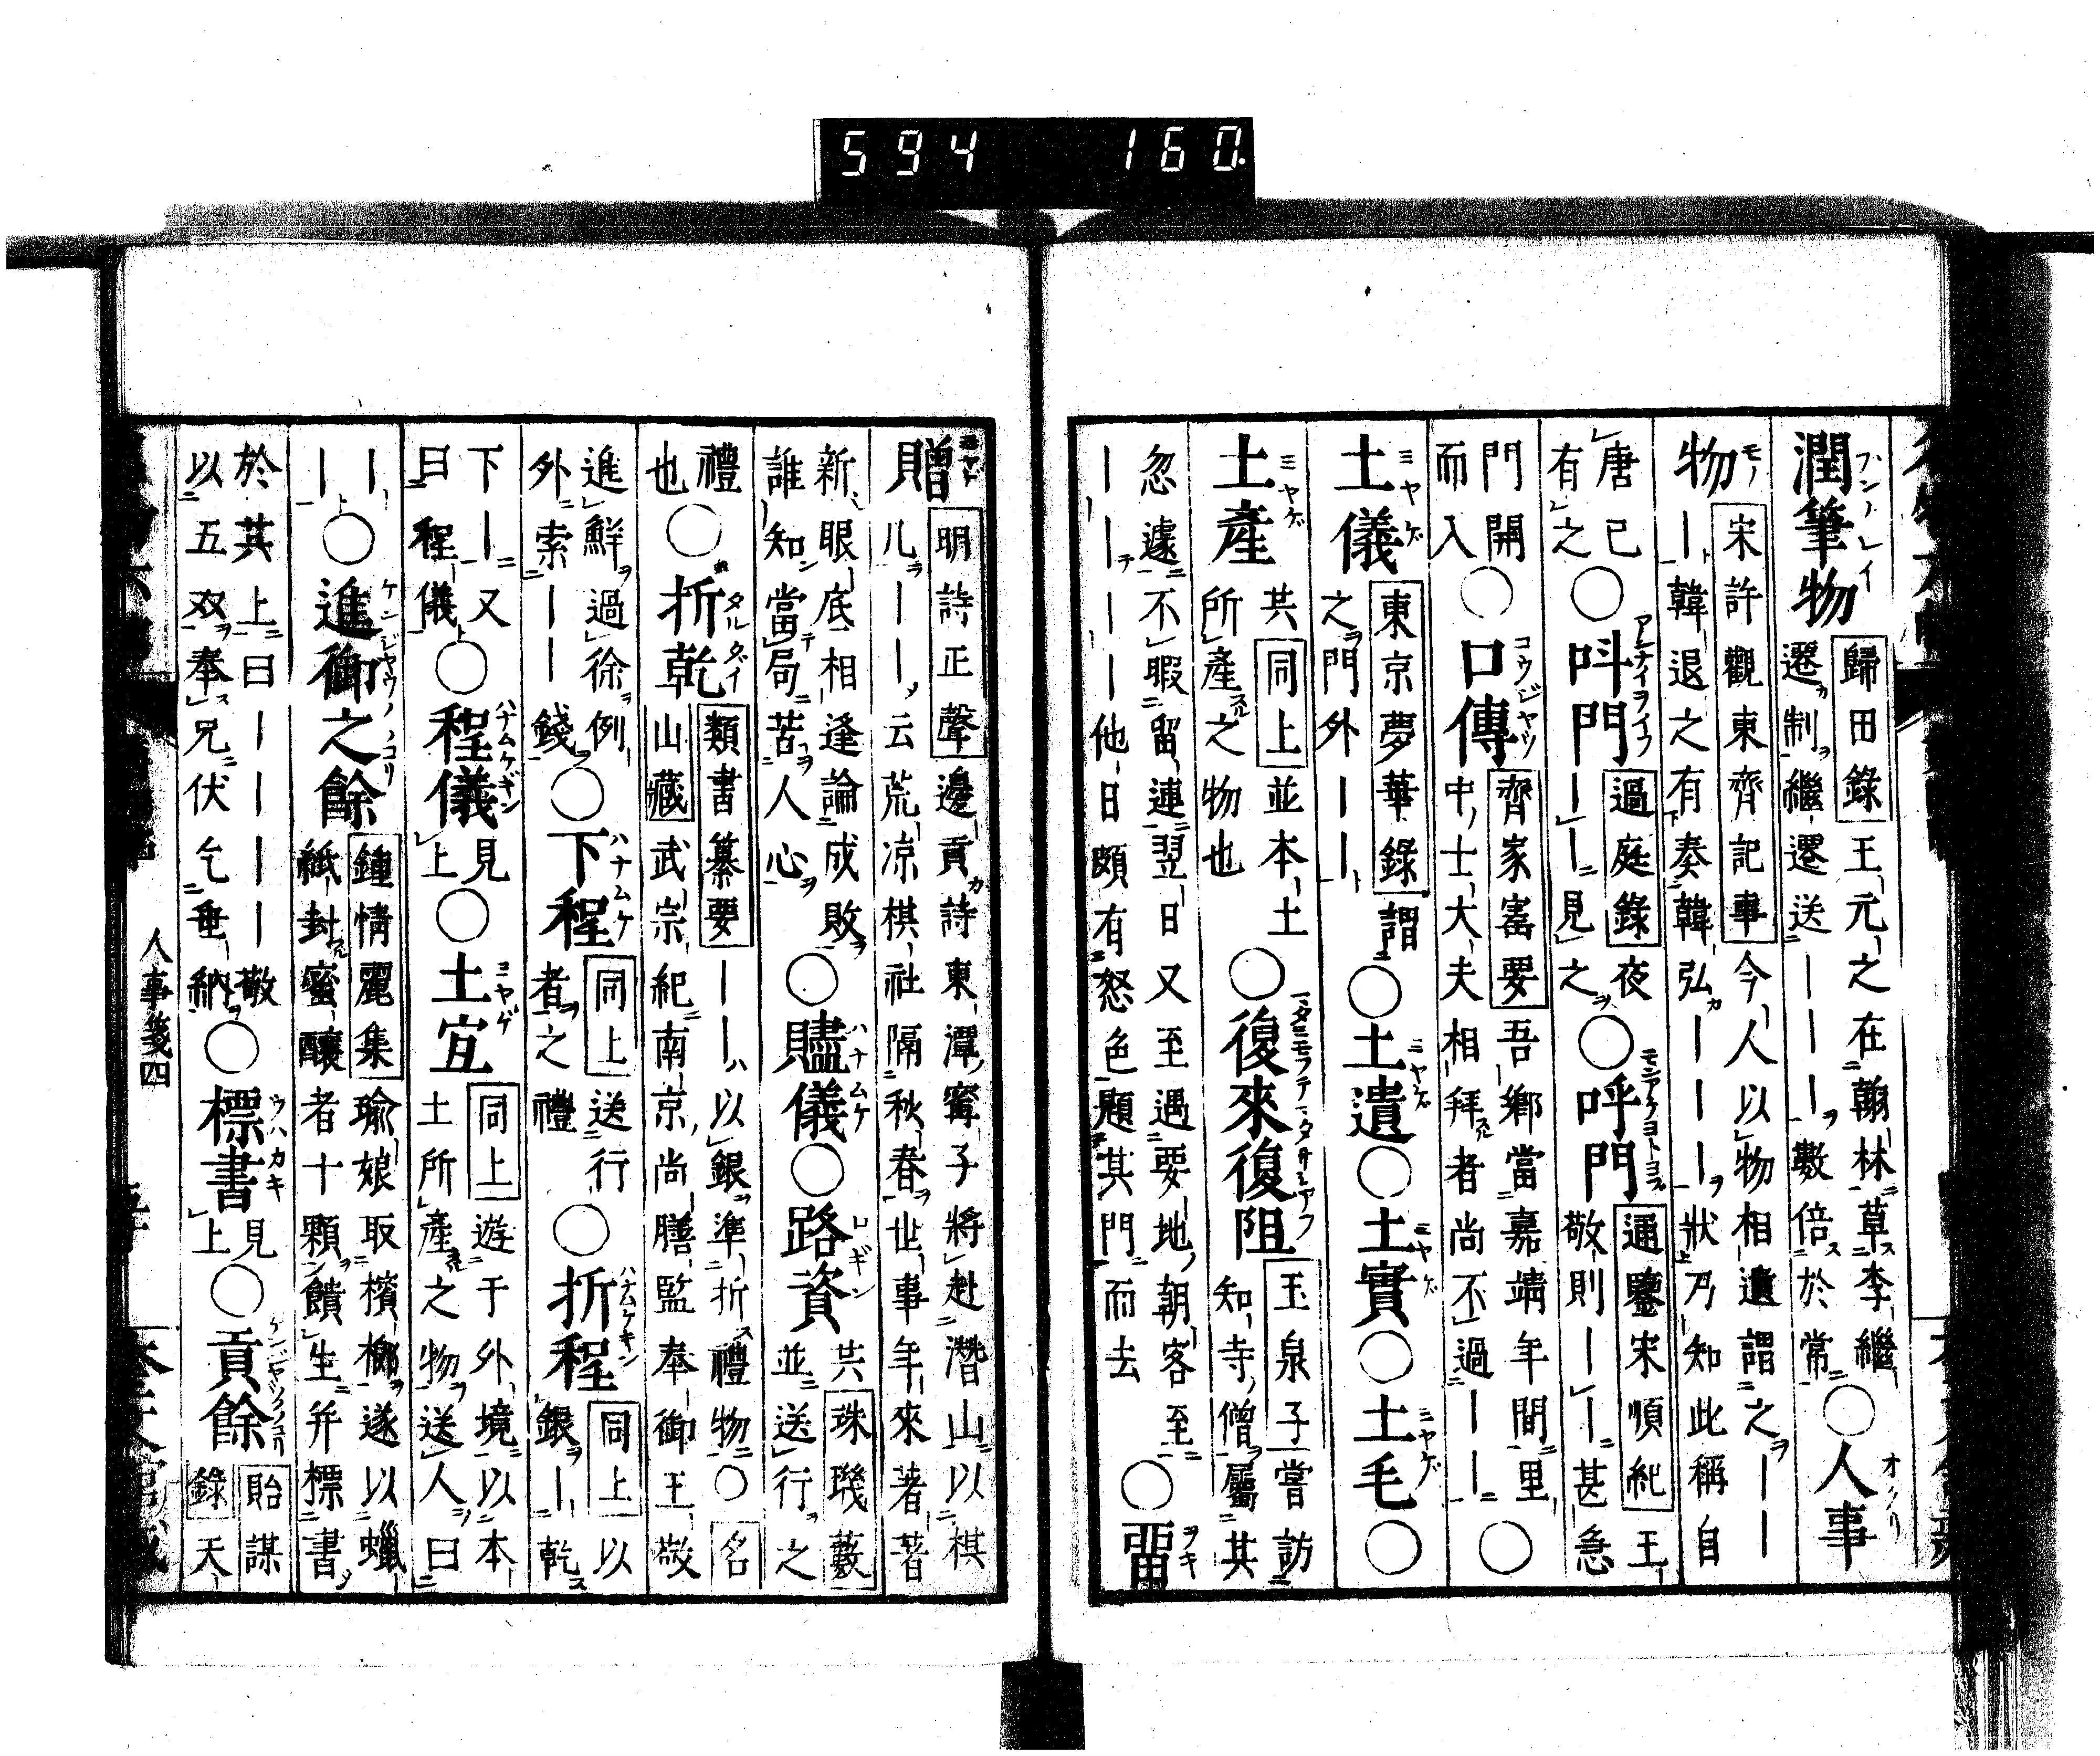 594 160
潤筆物歸田錄王元之在翰林草李繼遷制繼遷送｜｜｜數倍於常○人事
物宋許觀東齊記事今人以物相遺謂之｜｜｜韓退之有奏韓弘｜｜｜狀乃知此稱自
唐已有之○呌門過庭錄夜｜｜見之○呼門通鑒宋順紀王敬則｜｜甚急
門開而入○口傳齊家寚要吾鄉當嘉靖年間里中士大夫相拜者尚不過｜｜○
土儀東京夢華錄謂之門外｜｜○土遺○土實○土毛○
土產共同上並本土所產之物也○復來復阻玉泉子嘗訪知寺僧屬其
忽遽不暇留連翌日又至遇要地朝客至｜｜｜｜他日頗有怒色題其門而去○畱
贈明詩正聲邊貢詩東潭寗子將赴潛山以棋儿｜｜云荒凉棋社隔秋春世事年來著著
新眼底相逢論成敗誰知當局苦人心○贐儀○路資共珠璣藪並送行之
禮也○折乾類書纂要｜｜以銀準折禮物○名山藏武宗紀南京尚膳監奉御王敬
進鮮過徐例外索｜｜錢○下程同上送行者之禮○折程同上以銀｜乾
下｜又曰程儀○程儀見上○土宜同上遊于外境以本土所產之物送人曰
｜｜○進御之餘鍾情麗集瑜娘取檳榔遂以蠟紙封蜜釀者十顆饋生并標書
於其上曰｜｜｜｜敬以五双奉兄伏乞垂納○標書見上○貢餘貽謀錄天
人事箋四